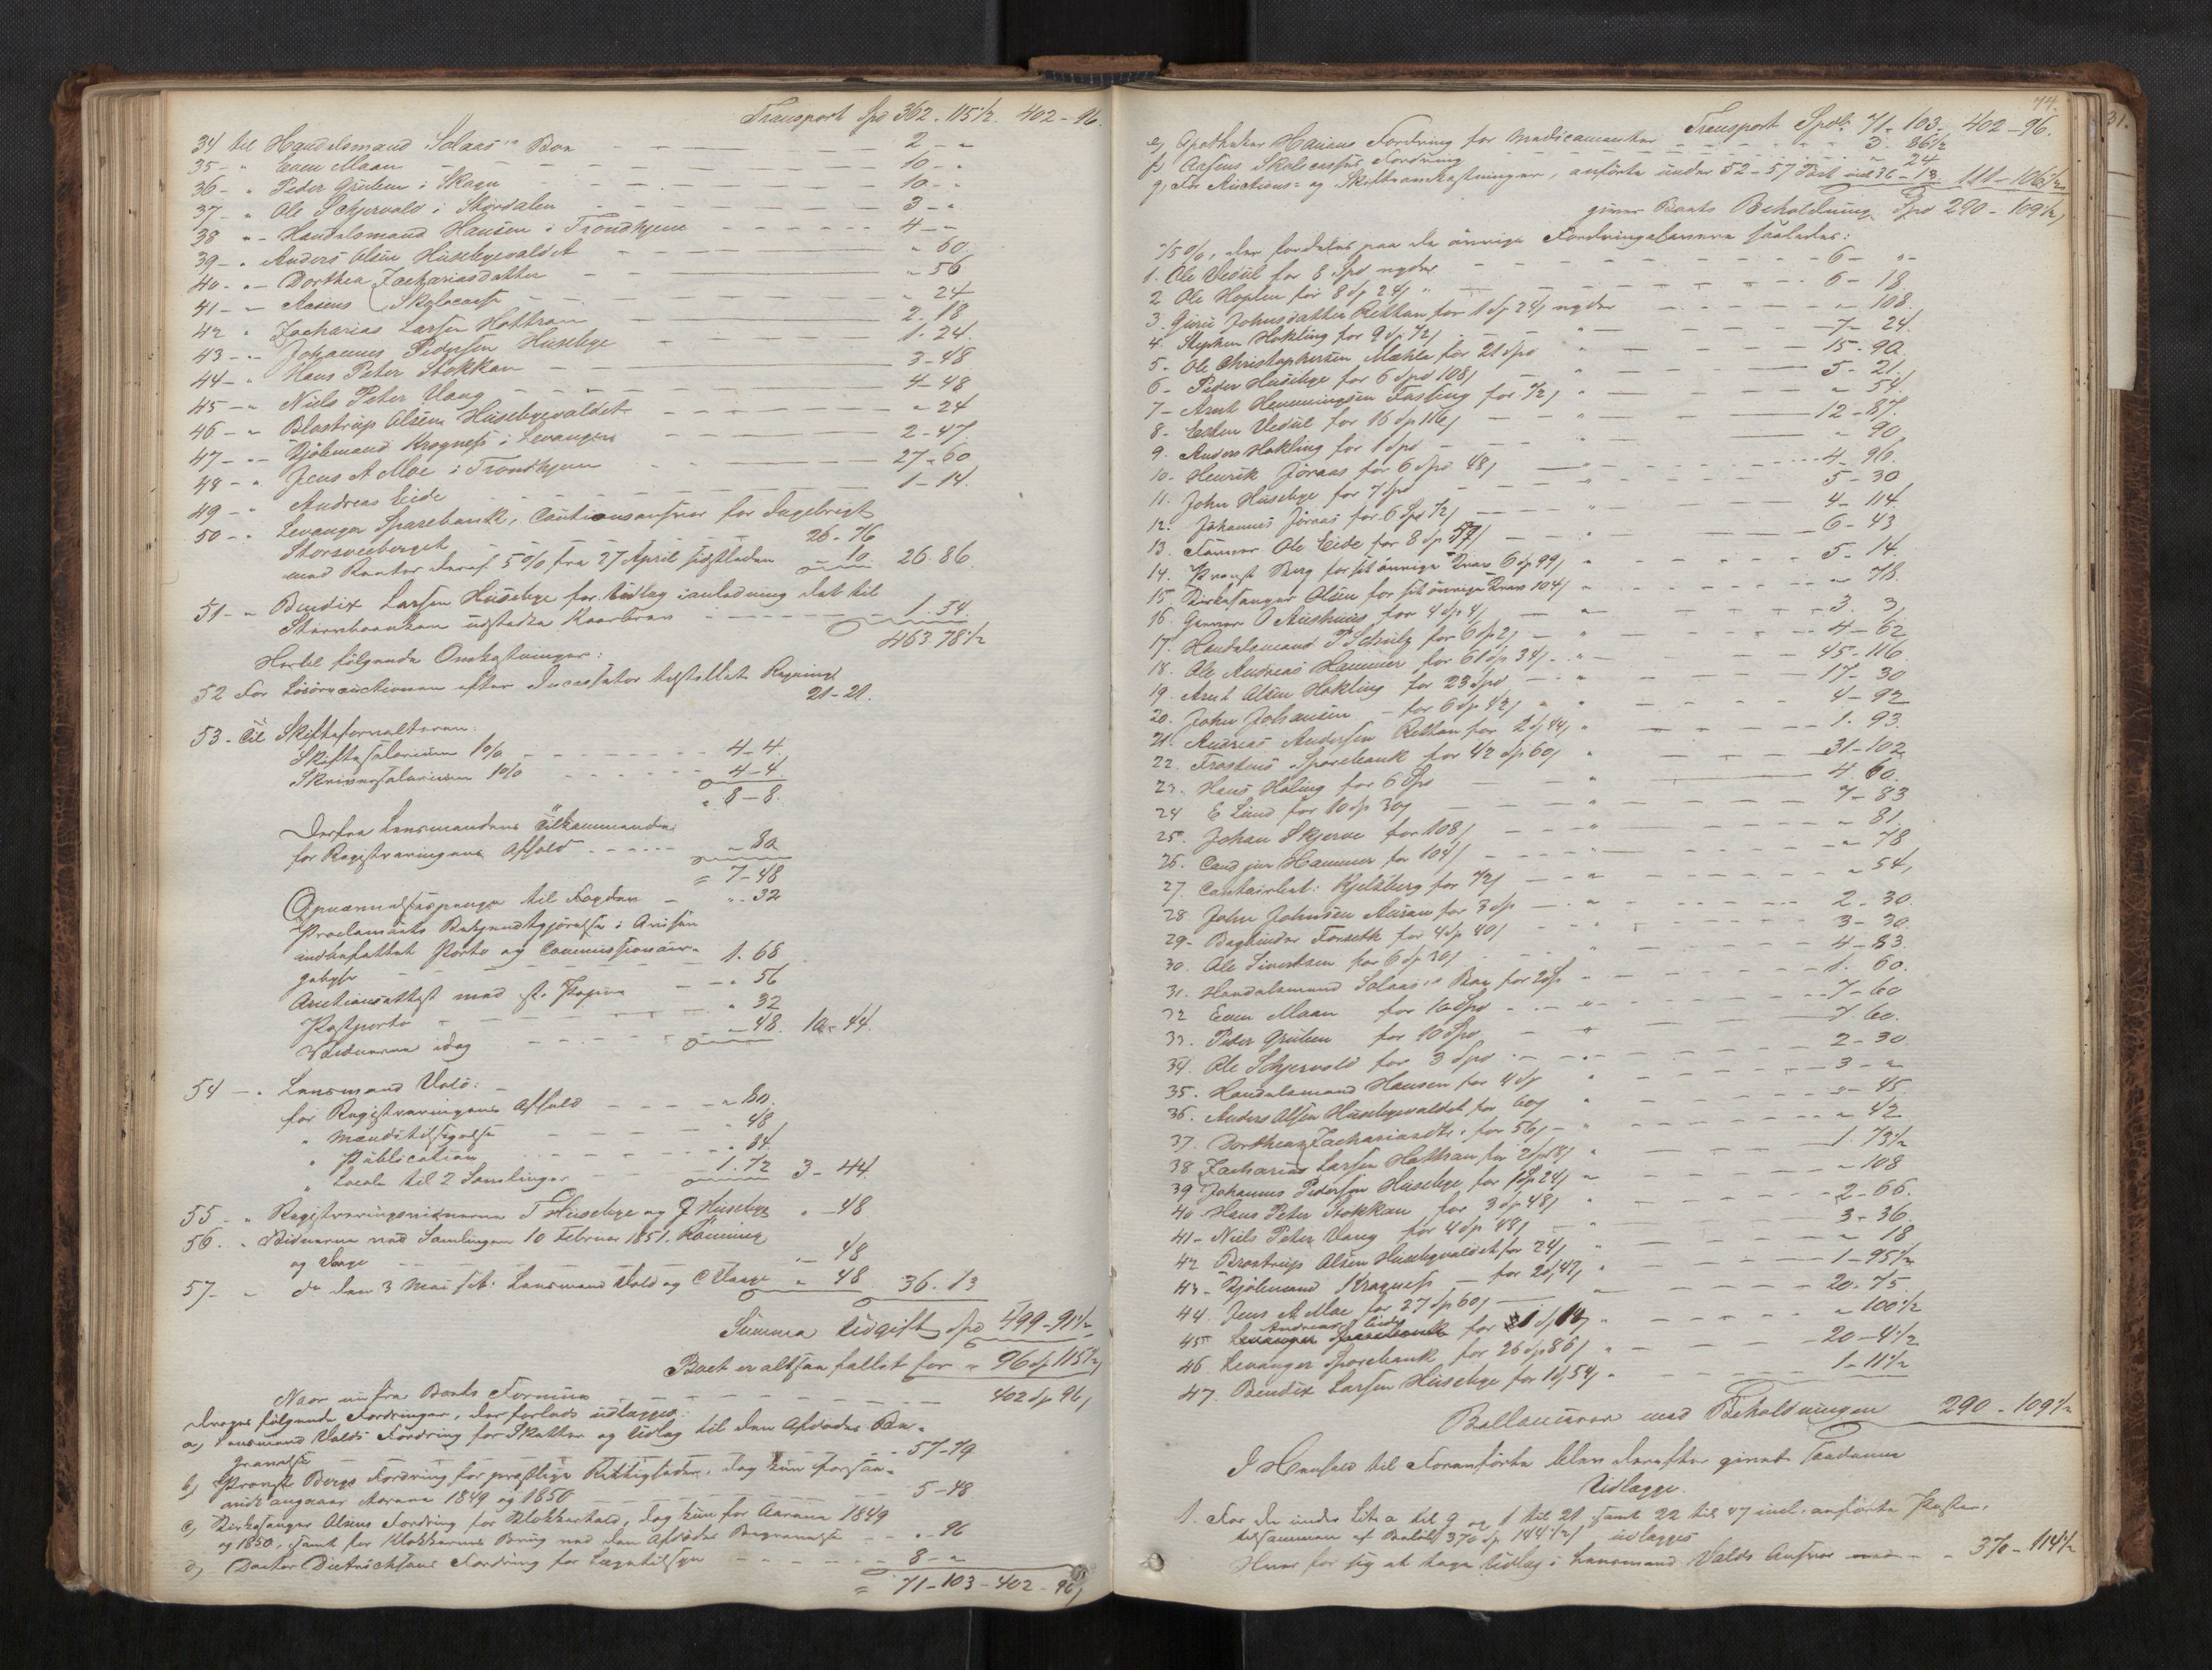 Transport Spd 362-115½. 402-96.
34 til Handelsmand Salaas's Boe 2 - "
35 - " Even Maan 10 - "
36 - " Peder Grulem i Skogn 10 - "
37 - " Ole Schjervold i Skjordalen 3 - "
38 " - Handelsmand Hansen i Trondhjem 4 - "
39 - " Anders Olsen Husebyevaldet " 60
40 - " - Dorthea Zachariasdatter " 56
41 - " Aasens Skolecasse " 24
42 " Zacharias Larsen Hottran 2. 18
43 - " Johannes Pedersen Husebye 1. 24.
44 - " Hans Peter Stokkan 3 - 48
45 - " Niels Peter Vang 4 - 48
46 - " Brostrup Olsen Husebyevaldet " 24
47 - " - Kjøbmand Kragness i Levanger 2 - 47.
48 - " Jens A Moe i Trondhjem 27 - 60
49 - " Andreas Eide 1 - 14.
50 - " Levanger Sparebank, Cautionsansvar for Ingebrigt
Storsveeberget 26 - 76
med Renter deraf 5 % fra 27 April sidstleden 10. 26. 86.
51 - " Bendix Larsen Husebye for Udlæg i anledning det til
udstedte 1. 54.
463 78½
Hertil følgende Omkostninger:
52 For Løsøreauctionen efter Incassator tilstillet Regning 21 - 21.
53 - til Skifteforvalteren:
Skiftesalarium 1 % 4 - 4.
Skriversalarium 1 % 4 - 4
" 8 - 8.
Derfra Lensmandens tilkommende
for Registreringens Afhold " 80
= 7 - 48
Opnævnelsespenge til Fogden " - 32
Proclamaets Bekjendtgjørelse i Avisen
indbefattet Porto og Commissionair-
gebyhr 1. 68
Auctionsattest med st. Papir " 56
Postporto " 32
Vidnerne idag " 48. 10 - 44.
54 - " Lensmand Vold:
for Registreringens Afhold " 80.
" Mændstilsigelse " 48
" Publication " 84.
" Locale til 2 Samlinger 1. 72 3 - 44.
55 - " Registreringsvidnerne T Husebye og J Husebye " - 48.
56. " Vidnerne ved Samlingen 10 Februar 1851.
og Vaage " - 48
57 - " do den 3 Mai sch: Lensmand Vold og C Vaage " 48 36. 13
Summa Udgift Spd 499 - 91½
Boet er altsaa fallit for " 96 Sp 115½
Naar nu fra Boets Formue 402 Sp 96,
drages følgende Fordringer, der forlods udlægges:
a, Lensmand Volds Fordring for Skatter og Udlæg til den Afdødes Be-
gravelse 57 - 79
b, Provst Bergs Fordring for præstlige Rettigheder, dog kun forsaa-
vidt angaaer Aarene 1849 og 1850 5 - 48
c, Kirkesanger Olsens Fordring for Klokkerhold, dog kun for Aarene 1849
og 1850, samt for Klokkernes Brug ved den Afdødes Begravelse " - 96
d, Doctor Dietrichsons Fordring for Lægetilsyn 8 - "
= 71 - 103 - 402 - 96,
74.
Transport Spdr. 71 - 103 - 402 - 96.
e, Apotheker Hansens Fordring for Medicamenter 3. 86½
f, Aasens Skolecasses Fordring " 24
g, For Auctions- og Skifteomkostninger, anførte under 52 - 57 Post incl 36 - 13. 111 - 106½
giver Boets Beholdning Spd 290 - 109½,
75 %, der fordeles paa de øvrige Fordringshavere saaledes:
1. Ole Vedul for 8 Spd nyder 6 - " -
2 Ole Hoplen for 8 Sp 24, " 6 - 18.
3. Guru Johnsdatter Rettan for 1 Sp 24, nyder " 108
4. Stephen Hokling for 9 Sp 72, 7 - 24.
5 - Ole Christophersen Mæhle for 21 Spd 15 - 90
6 - Peder Husebye for 6 Spd 108, 5 - 21.
7 - Arnt Henningsen Fasling for 72, " 54.
8 - Esten Vedul for 16 Sp 116, 12 - 87.
9. Anders Hokling for 1 Spd " 90
10 - Henrik Jøraas for 6 Spd 48, 4 - 96.
11. John Husebye for 7 Spd 5 - 30
12. Johannes Jøraas for 6 Spd 72, 4 - 114.
13. Ole Eide for 8 Sp 57, 6 - 43
14. Provst Berg for sit øvrige Krav 6 Sp 99, 5 - 14.
15 Kirkesanger Olsen for sit øvrige Krav 104, " 78.
16. Gunner O Aushuus for 4 Sp 4, 3. 3,
17. Handelsmand P Schulz for 6 Sp 2, 4 - 62
18. Ole Andreas Hammer for 61 Sp 34, 45 - 116
19. Arnt Olsen Hokling for 23 Spd 17 - 30
20. John Johansen - for 6 Sp 42, 4 - 92
21. Andreas Andersen Rettan for 2 Sp 44, 1. 93.
22. Frostens Sparebank for 42 Sp 60, 31 - 102
23. Hans Høling for 6 Spd 4. 60.
24 E Lund for 10 Sp 30, 7 - 83
25. Johan Skjerve for 108, " 81.
26. Cand jur Hammer for 104, " 78
27. Contoirbet: Kjelsberg for 72, " 54,
28 John Johnsen Auran for 3 Sp 2 - 30.
29 - Bogbinder Forseth for 4 Sp 40, 3 - 30.
30. Ole Sivertsen for 6 Sp 30, 4 - 83.
31. Handelsmand Salaas's Boe for 2 Sp 1. 60.
32 Even Maan for 10 Spd 7 - 60
33. Peter Grulem for 10 Spd 7. 60.
34. Ole Schjervold for 3 Spd 2 - 30
35. Handelsmand Hansen for 4 Sp 3 - "
36. Anders Olsen Husebyevaldet for 60, " - 45.
37. Dorthea Zachariasdtr. for 56, " 42
38 Zacharias Larsen Hottran for 2 Sp 18, 1. 73½
39 Johannes Pedersen Husebye for 1 Sp 24, " 108
40 Hans Peter Stokkan for 3 Sp 48, 2 - 66.
41 - Niels Peter Vang for 4 Sp 48, 3 - 36
42 Brostrup Olsen Husebyevaldet for 24, " 18
43 - Kjøbmand Kragness - for 2 Sp 47, 1 - 95½
44. Jens A Moe for 27 Sp 60, 20. 75.
45 Andreas Eide for 1 Sp 14, " 100½
46 Levanger Sparebank for 26 Sp 86, 20 - 4½
47. Bendix Larsen Husebye for 1 Sp 54, 1 - 11½
Ballancerer med Beholdningen 290 - 109½
I Henhold til Foranførte blev derefter gjort saadanne
Udlægge.
1. For de under Lit. a til g og 1 til 21 samt 22 til 47 incl. anførte Poster,
tilsammen af Beløb 370 Sp 114½, udlægges
Hver for sig at tage Udlæg i Lensmand Volds Ansvar " 370 - 114½